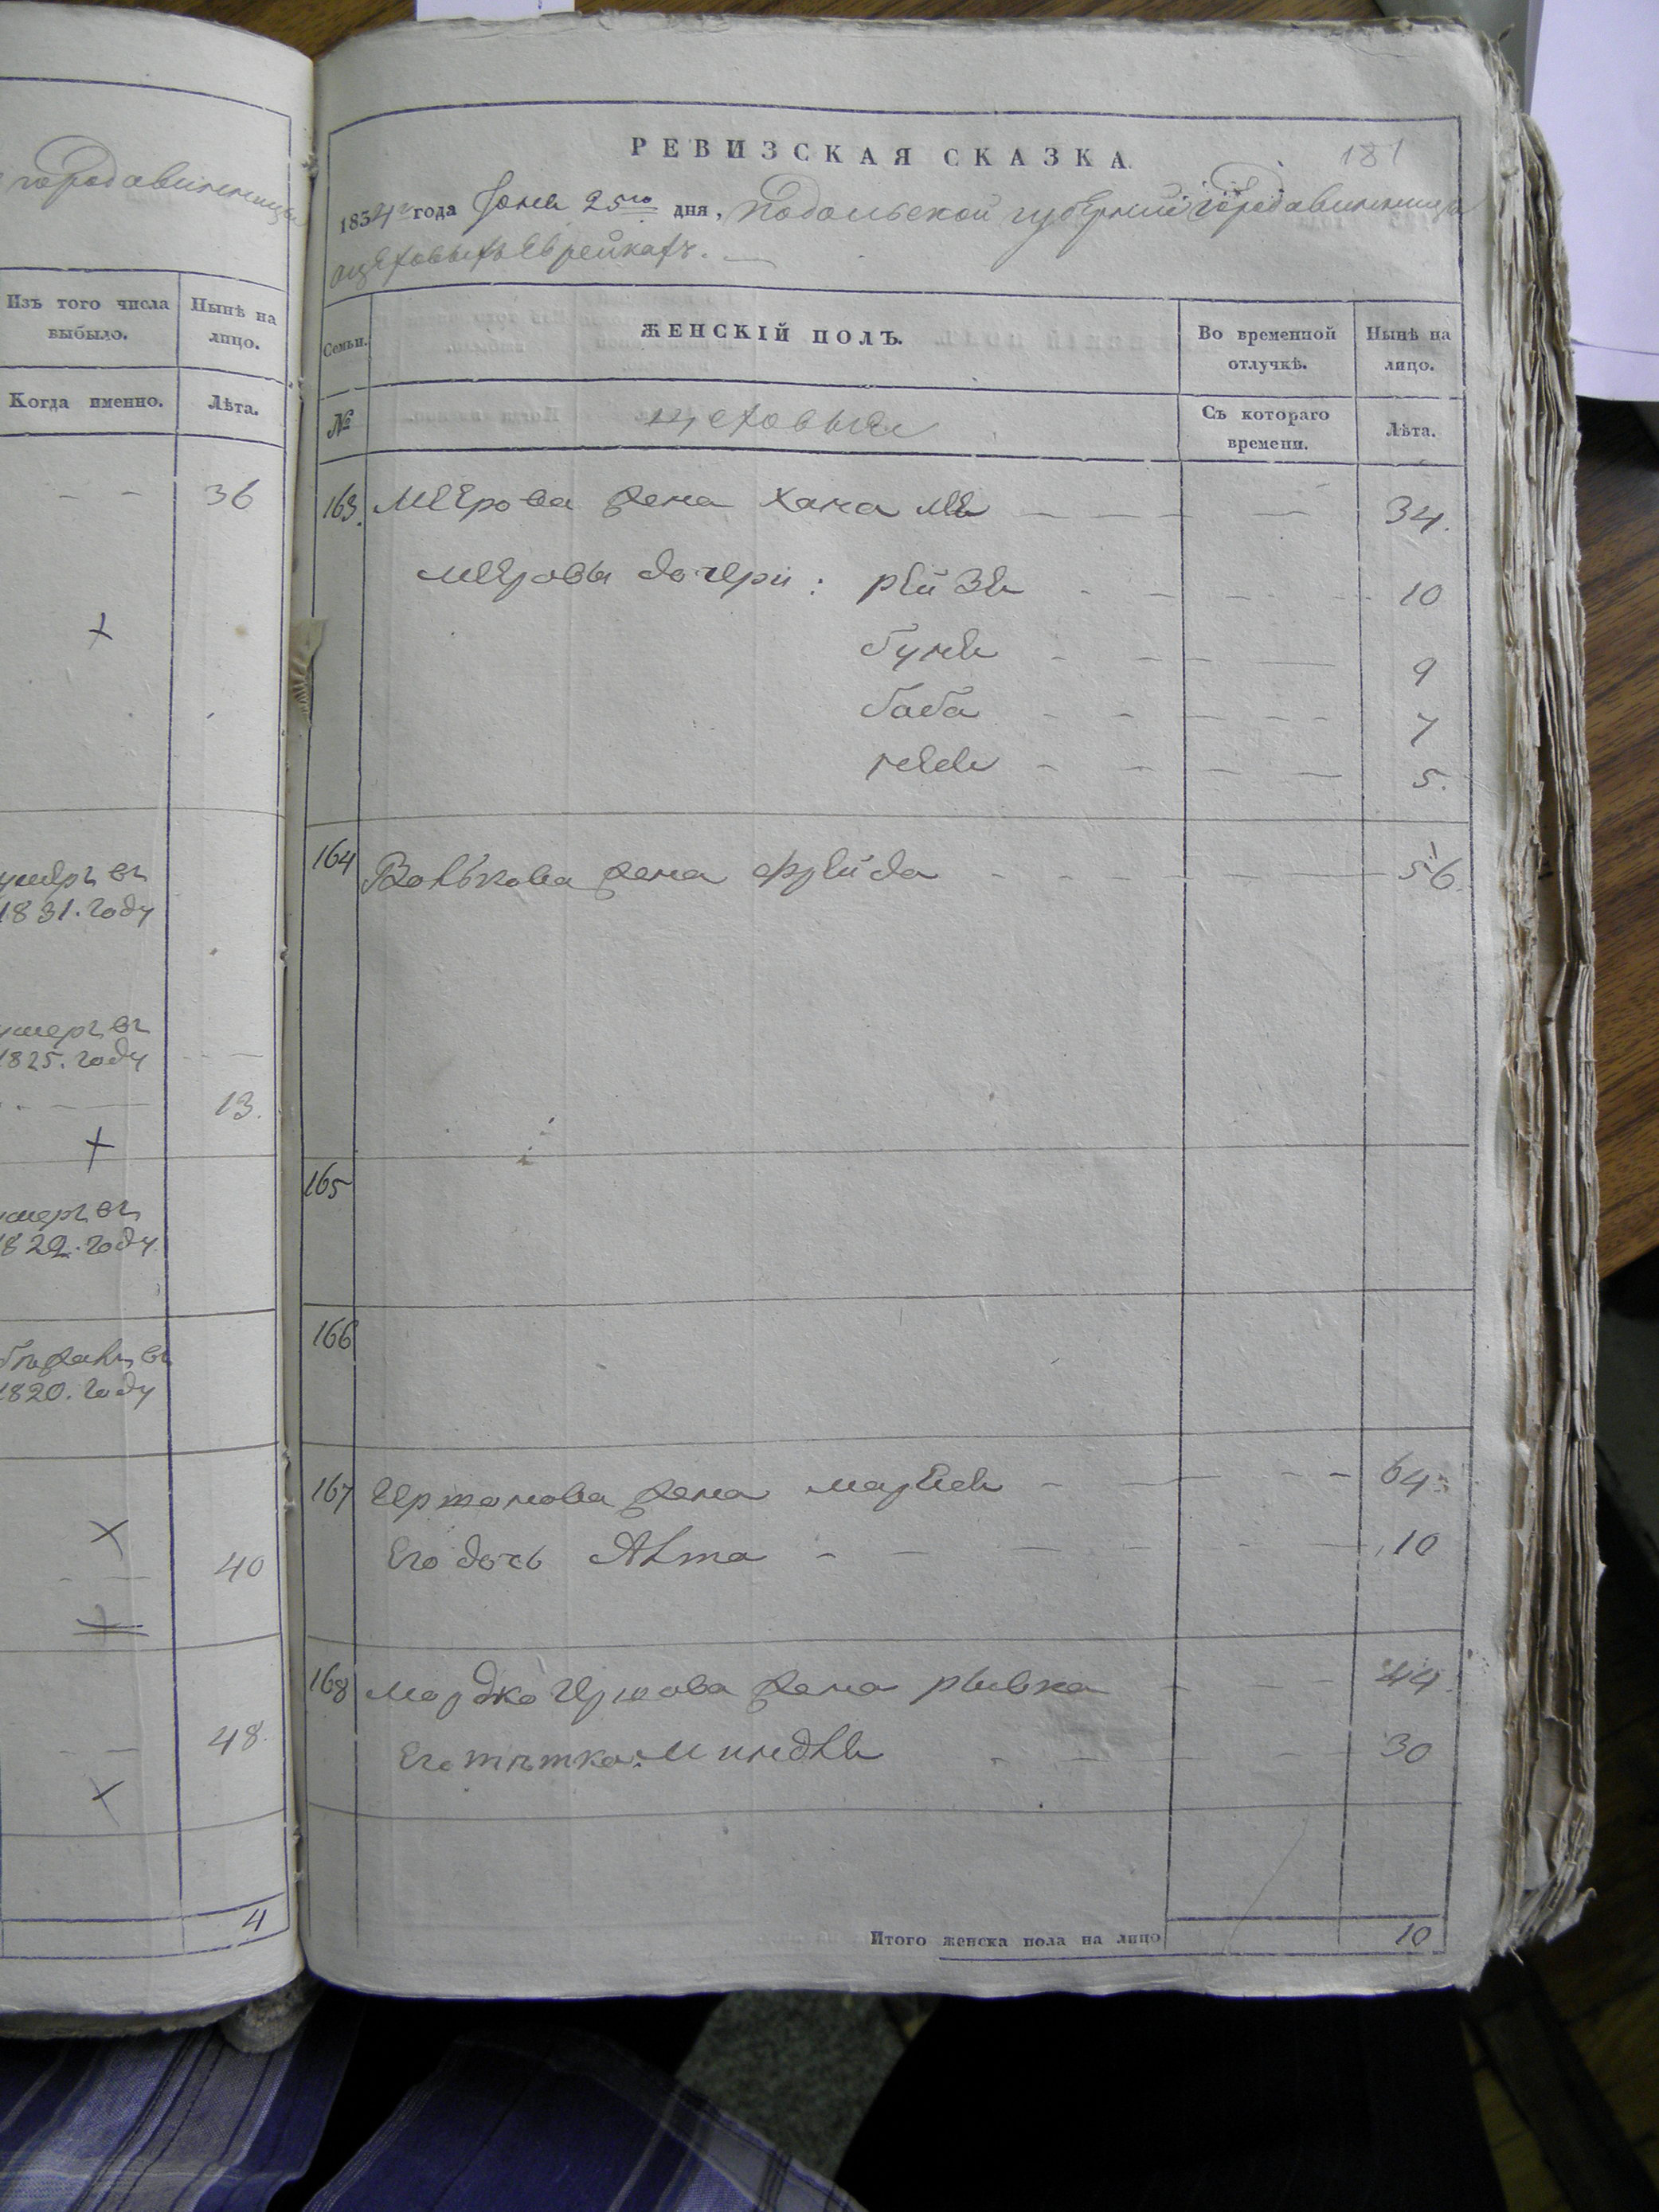 города винницы
Изъ того числа выбыло.
Нынѣ на лицо.
Когда именно.
Лѣта.
36
умеръ въ
1831. году
умеръ въ
1825. году
13.
умеръ въ
1822. году
въ
1820. году
40
48.
4
РЕВИЗСКАЯ СКАЗКА.
181
1834го года Юня 25го дня, Подольской губерніи города винницы
цеховыхъ Еврейкахъ.
Семьи.
ЖЕНСКІЙ ПОЛЪ.
Во временной отлучкѣ.
Нынѣ на лицо.
№
цеховые
Съ котораго времени.
Лѣта.
163. Меерова жена Хана 34.
Мееровы дочери: рейзя 10
буня 9
баба 7
5.
164 Волькова жена фрейда 56.
165
166
167 жена 64
Его дочь Алта 10
168 Мордко Гершова жена рывка 44.
Его тѣтка: Миндля 30
Итого женска пола на лицо 10